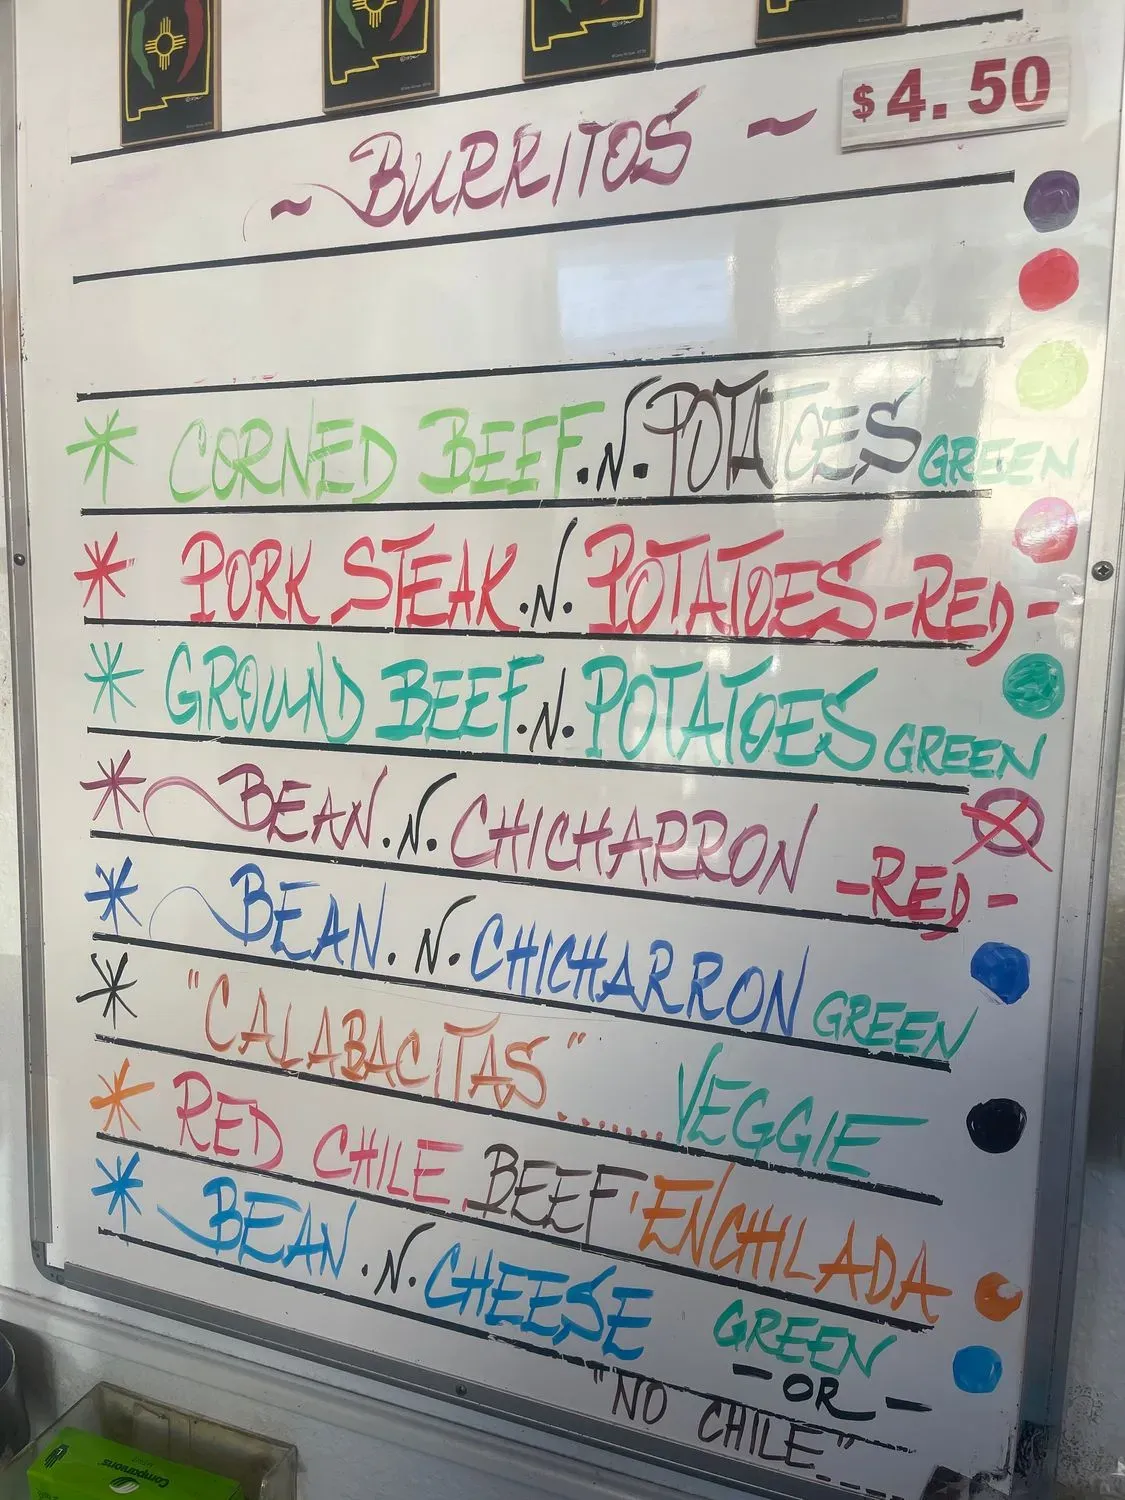 $4.50
~ BURRITOS ~
* CORNED BEEF .N. POTATOES GREEN
* PORK STEAK .N. POTATOES -RED-
* GROUND BEEF .N. POTATOES GREEN
* BEAN .N. CHICHARRON -RED-
* BEAN .N. CHICHARRON GREEN
* "CALABACITAS" ....... VEGGIE
* RED CHILE BEEF ENCHILADA
* BEAN .N. CHEESE GREEN
- OR -
"NO CHILE"...
Companions